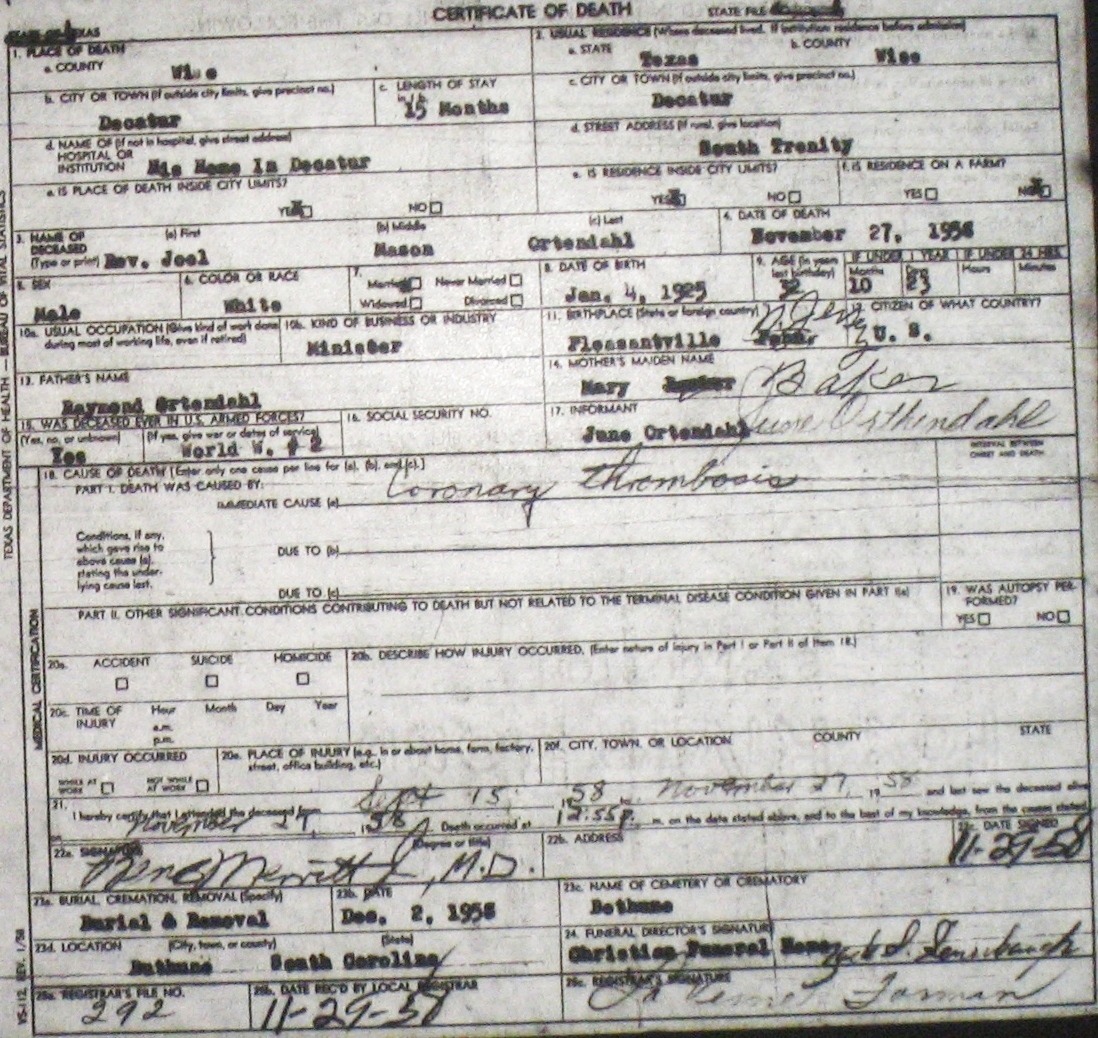 CERTIFICATE OF DEATH STATE FILE
TEXAS
1. PLACE OF DEATH
a. COUNTY
Wise
2. USUAL RESIDENCE (Where deceased lived. If institution residence before admission)
a. STATE
Texas
b. COUNTY
Wise
b. CITY OR TOWN (If outside city limits, give precinct no.)
Decatur
c. LENGTH OF STAY
15 Months
c. CITY OR TOWN (If outside city limits, give precinct no.)
Decatur
d. NAME OF (If not in hospital, give street address)
HOSPITAL OR
INSTITUTION His Home In Decatur
d. STREET ADDRESS (If rural, give location)
South Trenity
e. IS PLACE OF DEATH INSIDE CITY LIMITS?
YES NO
e. IS RESIDENCE INSIDE CITY LIMITS?
YES NO
f. IS RESIDENCE ON A FARM?
YES NO
3. NAME OF
DECEASED
(Type or print)
(a) First
Rev. Joel
(b) Middle
Mason
(c) Last
Ortendahl
4. DATE OF DEATH
November 27, 1958
5. SEX
Male
6. COLOR OR RACE
White
7.
Married Never Married
Widowed Divorced
8. DATE OF BIRTH
Jan. 4, 1925
9. AGE (In years
last birthday)
32
IF UNDER 1 YEAR
Months
10
Days
23
IF UNDER 24 HRS.
Hours Minutes
10a. USUAL OCCUPATION (Give kind of work done
during most of working life, even if retired)
10b. KIND OF BUSINESS OR INDUSTRY
Minister
11. BIRTHPLACE (State or foreign country)
Pleasantville N. Jersey
12. CITIZEN OF WHAT COUNTRY?
U. S.
13. FATHER'S NAME
Raymond Ortendahl
14. MOTHER'S MAIDEN NAME
Mary Baker
15. WAS DECEASED EVER IN U.S. ARMED FORCES?
(Yes, no, or unknown)
Yes
(If yes, give war or dates of service)
World W. # 2
16. SOCIAL SECURITY NO.
17. INFORMANT
June Ortendahl June Orthendahl
18. CAUSE OF DEATH [Enter only one cause per line for (a), (b), and (c).]
INTERVAL BETWEEN
ONSET AND DEATH
PART I. DEATH WAS CAUSED BY:
IMMEDIATE CAUSE (a) Coronary thrombosis
Conditions, if any,
which gave rise to
above cause (a),
stating the under-
lying cause last.
DUE TO (b)
DUE TO (c)
PART II. OTHER SIGNIFICANT CONDITIONS CONTRIBUTING TO DEATH BUT NOT RELATED TO THE TERMINAL DISEASE CONDITION GIVEN IN PART I(a)
19. WAS AUTOPSY PER-
FORMED?
YES NO
20a. ACCIDENT SUICIDE HOMICIDE
20b. DESCRIBE HOW INJURY OCCURRED. (Enter nature of injury in Part I or Part II of Item 18.)
20c. TIME OF
INJURY
Hour Month Day Year
a.m.
p.m.
20d. INJURY OCCURRED
WHILE AT
WORK
NOT WHILE
AT WORK
20e. PLACE OF INJURY (e.g., in or about home, farm, factory,
street, office building, etc.)
20f. CITY, TOWN, OR LOCATION COUNTY STATE
21.
I hereby certify that I attended the deceased from Sept 15 1958 to November 27, 1958 and last saw the deceased alive
on November 27, 1958 Death occurred at 12:55 p. m. on the date stated above, and to the best of my knowledge, from the causes stated.
22a. SIGNATURE (Degree or title)
Merritt, M.D.
22b. ADDRESS
22c. DATE SIGNED
11-29-58
23a. BURIAL, CREMATION, REMOVAL (Specify)
Burial & Removal
23b. DATE
Dec. 2, 1958
23c. NAME OF CEMETERY OR CREMATORY
Bethune
23d. LOCATION (City, town, or county) (State)
Buthune South Carolina
24. FUNERAL DIRECTOR'S SIGNATURE
Christian Funeral Home
25a. REGISTRAR'S FILE NO.
292
25b. DATE REC'D BY LOCAL REGISTRAR
11-29-58
25c. REGISTRAR'S SIGNATURE
Forman
TEXAS DEPARTMENT OF HEALTH — BUREAU OF VITAL STATISTICS
MEDICAL CERTIFICATION
VS-112 REV. 1/58